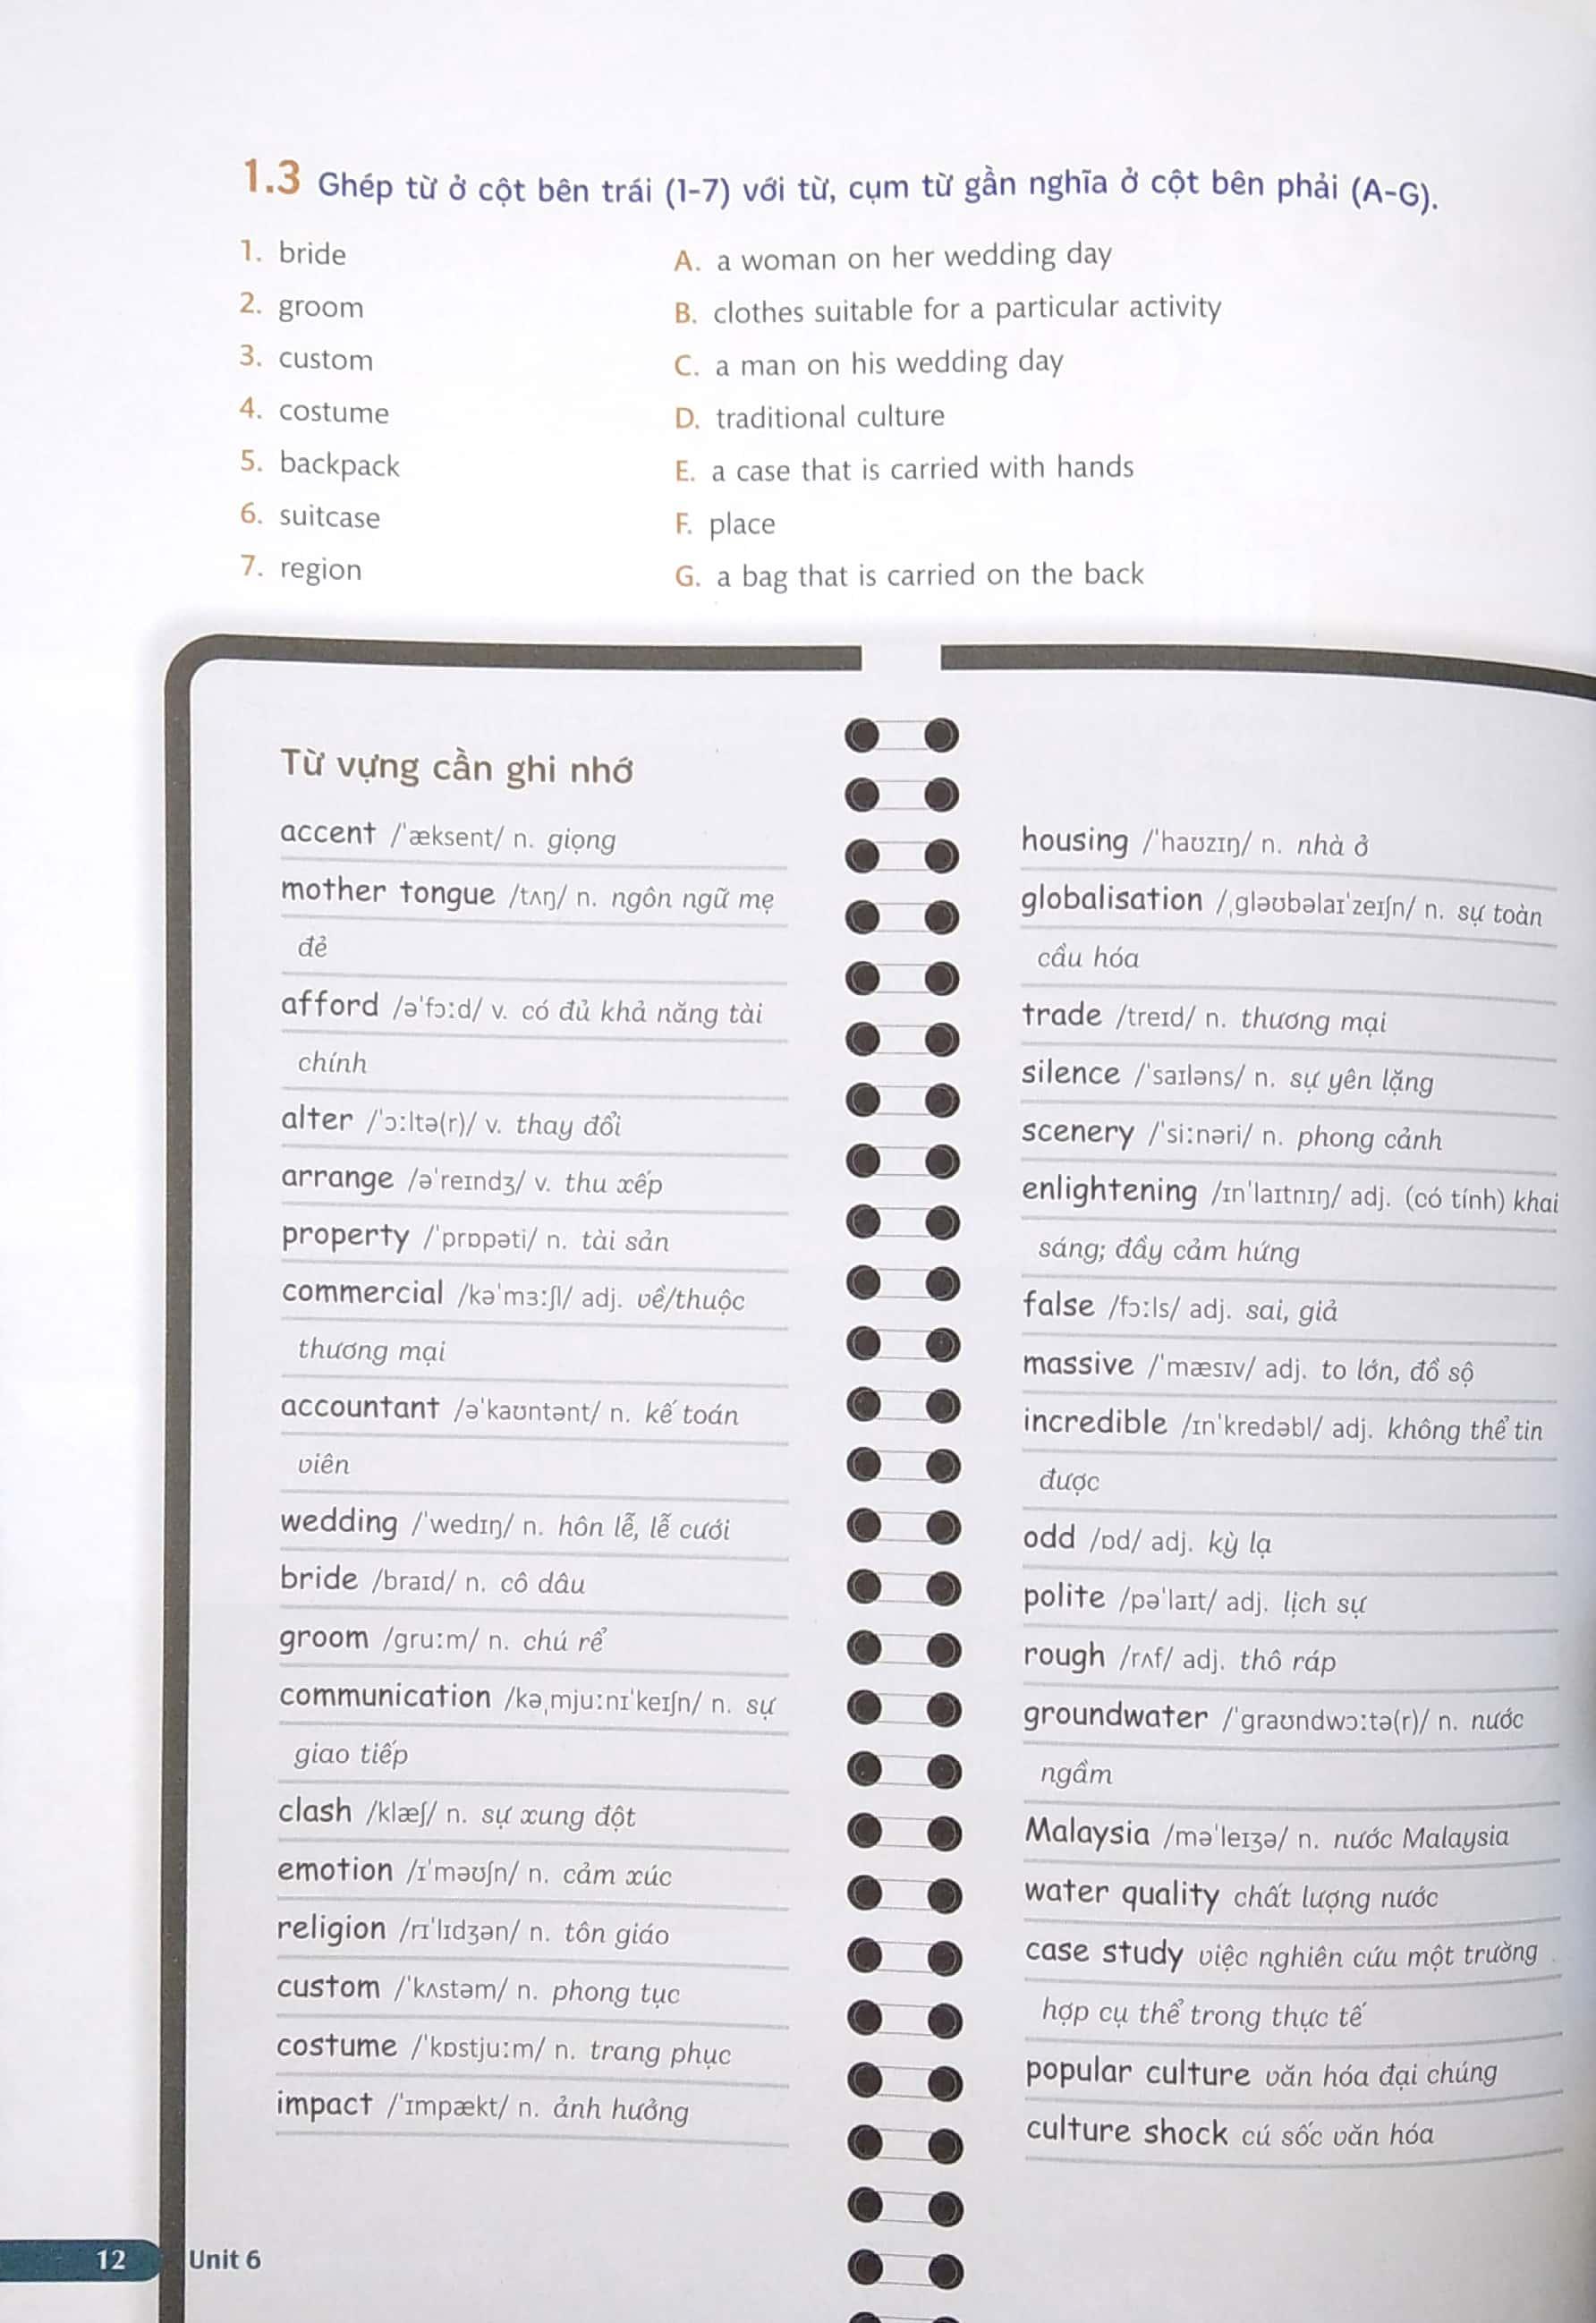 1.3 Ghép từ ở cột bên trái (1-7) với từ, cụm từ gần nghĩa ở cột bên phải (A-G).
1. bride
2. groom
3. custom
4. costume
5. backpack
6. suitcase
7. region
A. a woman on her wedding day
B. clothes suitable for a particular activity
C. a man on his wedding day
D. traditional culture
E. a case that is carried with hands
F. place
G. a bag that is carried on the back
Từ vựng cần ghi nhớ
accent /ˈæksent/ n. giọng
mother tongue /tʌŋ/ n. ngôn ngữ mẹ
đẻ
afford /əˈfɔːd/ v. có đủ khả năng tài
chính
alter /ˈɔːltə(r)/ v. thay đổi
arrange /əˈreɪndʒ/ v. thu xếp
property /ˈprɒpəti/ n. tài sản
commercial /kəˈmɜːʃl/ adj. về/thuộc
thương mại
accountant /əˈkaʊntənt/ n. kế toán
viên
wedding /ˈwedɪŋ/ n. hôn lễ, lễ cưới
bride /braɪd/ n. cô dâu
groom /gruːm/ n. chú rể
communication /kəˌmjuːnɪˈkeɪʃn/ n. sự
giao tiếp
clash /klæʃ/ n. sự xung đột
emotion /ɪˈməʊʃn/ n. cảm xúc
religion /rɪˈlɪdʒən/ n. tôn giáo
custom /ˈkʌstəm/ n. phong tục
costume /ˈkɒstjuːm/ n. trang phục
impact /ˈɪmpækt/ n. ảnh hưởng
housing /ˈhaʊzɪŋ/ n. nhà ở
globalisation /ˌgləʊbəlaɪˈzeɪʃn/ n. sự toàn
cầu hóa
trade /treɪd/ n. thương mại
silence /ˈsaɪləns/ n. sự yên lặng
scenery /ˈsiːnəri/ n. phong cảnh
enlightening /ɪnˈlaɪtnɪŋ/ adj. (có tính) khai
sáng; đầy cảm hứng
false /fɔːls/ adj. sai, giả
massive /ˈmæsɪv/ adj. to lớn, đồ sộ
incredible /ɪnˈkredəbl/ adj. không thể tin
được
odd /ɒd/ adj. kỳ lạ
polite /pəˈlaɪt/ adj. lịch sự
rough /rʌf/ adj. thô ráp
groundwater /ˈgraʊndwɔːtə(r)/ n. nước
ngầm
Malaysia /məˈleɪʒə/ n. nước Malaysia
water quality chất lượng nước
case study việc nghiên cứu một trường
hợp cụ thể trong thực tế
popular culture văn hóa đại chúng
culture shock cú sốc văn hóa
12 Unit 6